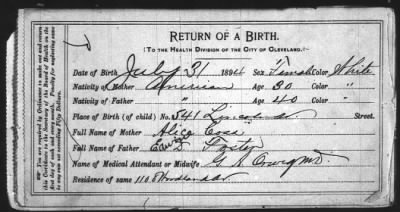 RETURN OF A BIRTH.
(TO THE HEALTH DIVISION OF THE CITY OF CLEVELAND.)
Date of Birth July 31 189 Sex Female Color White
Nativity of Mother American Age 30 Color "
Nativity of Father " Age 40 Color "
Place of Birth (of child) No. 541 Lincoln Street.
Full Name of Mother Alice
Full Name of Father Foster
Name of Medical Attendant or Midwife G A M.D.
Residence of same 1108 Woodland av
You are required by Ordinance to make out and return
this Certificate to the Secretary of the Board of Health on the
first day of each and every month. Penalty for neglecting
to do so not exceeding Fifty Dollars.